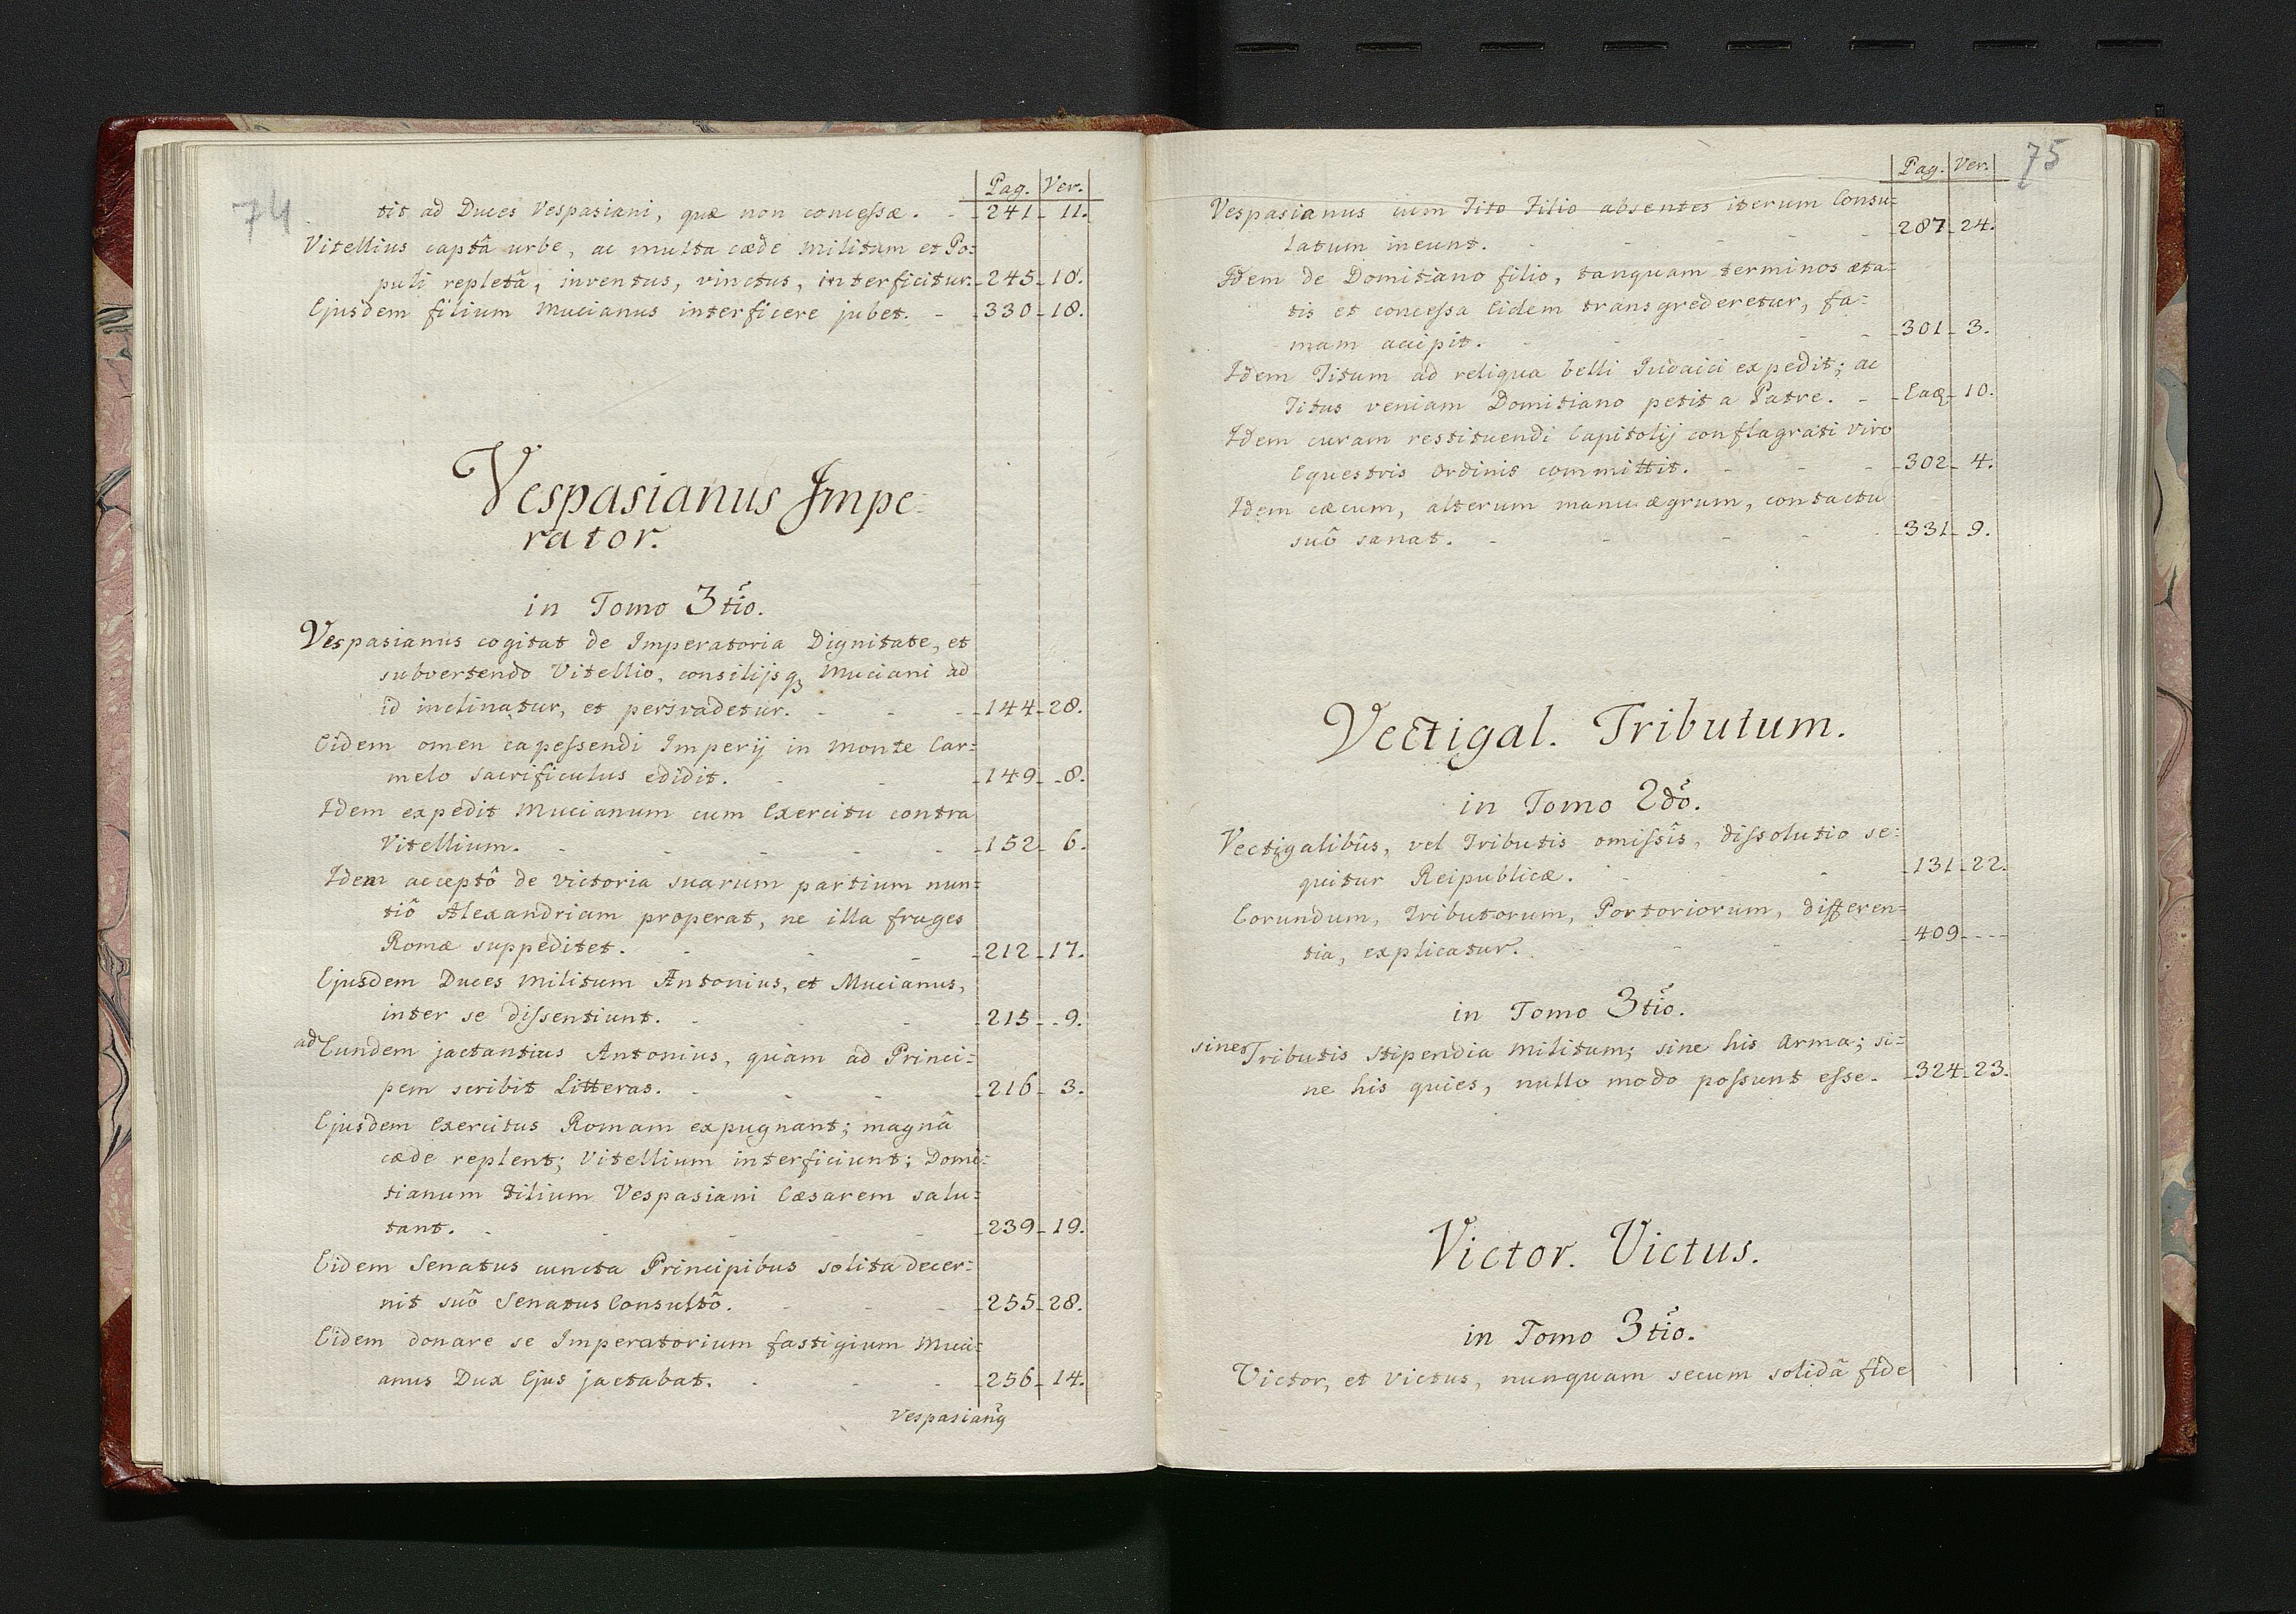 74
Pag. Ver.
tit ad Duces Vespasiani, quæ non concessæ. - 241 - 11.
Vitellius captâ urbe, ac multa cæde militum et Po=
puli repletâ, inventus, vinctus, interficitur. 245 - 18.
Ejusdem filium Mucianus interficere jubet. - 330 - 18.
Vespasianus Impe=
rator.
in Tomo 3tio.
Vespasianus cogitat de Imperatoria Dignitate, et
subvertendo Vitellio, consilijsq3 Muciani ad
id inclinatur, et persvadetur. - - 144 - 28.
Eidem omen capessendi Imperij in monte Car=
melo sacrificulus edidit. - - 149 - 8.
Idem expedit Mucianum cum Exercitu contra
Vitellium. - - - - - 152 - 6.
Idem acceptô de victoria suarum partium nun=
tiô Alexandriam properat, ne illa fruges
Romæ suppeditet. - - - 212 - 17.
Ejusdem Duces Militum Antonius, et Mucianus,
inter se dissentiunt. - - - 215 - 9.
ad Eundem jactantius Antonius, quàm ad Princi=
pem scribit Litteras. - - - 216 - 3.
Ejusdem Exercitus Romam expugnant; magnâ
cæde replent; Vitellium interficiunt; Domi=
tianum Filium Vespasiani Cæsarem salu=
tant. - - - - - 239 - 19.
Eidem Senatus cuncta Principibus solita decer=
nit suô Senatus Consultô. - - - 255 - 28.
Eidem donare se Imperatorium fastigium Muci=
anus Dux Ejus jactabat. - - - 256 - 14.
Vespasianꝰ
75
Pag. Ver.
Vespasianus cum Tito Filio absentes iterum Consu=
latum ineunt. - - - - 287 - 24.
Idem de Domitiano filio, tanquam terminos æta=
tis et concessa Eidem transgrederetur, fa=
mam accipit. - - - - 301 - 3.
Idem Titum ad reliqua belli Iudaici expedit; ac
Titus veniam Domitiano petit a Patre. - Eaq - 10.
Idem curam restituendi Capitolij conflagrati viro
Equestris Ordinis committit. - - - 302 - 4.
Idem cæcum, alterum manu ægrum, contactu
suô sanat. - - - - - 331 - 9.
Vectigal. Tributum.
in Tomo 2do.
Vectigalibûs, vel Tributis omissîs, dissolutio se=
quitur Reipublicæ. - - - 131 - 22.
Eorundum, Tributorum, Portoriorum, differen=
tia, explicatur. - - - 409 - - - -
in Tomo 3tio.
sine Tributis Stipendia Militum; sine his Arma; si=
ne his quies, nullo modo possunt esse. - 324 - 23.
Victor. Victus.
in Tomo 3tio.
Victor, et Victus, nunquam secum solidâ fide